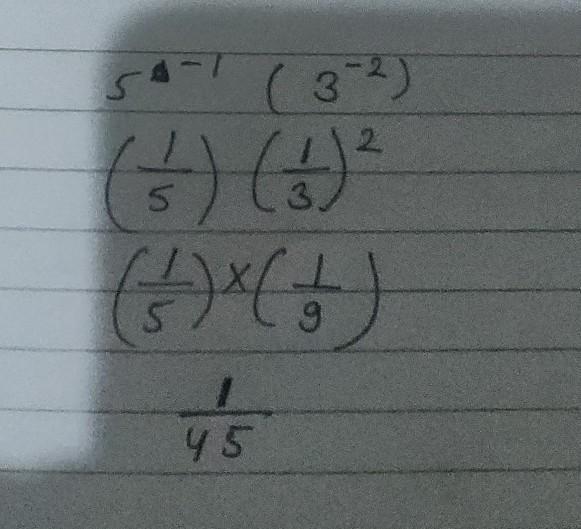 5⁻¹ (3⁻²)
(1/5) (1/3)²
(1/5) × (1/9)
1/45